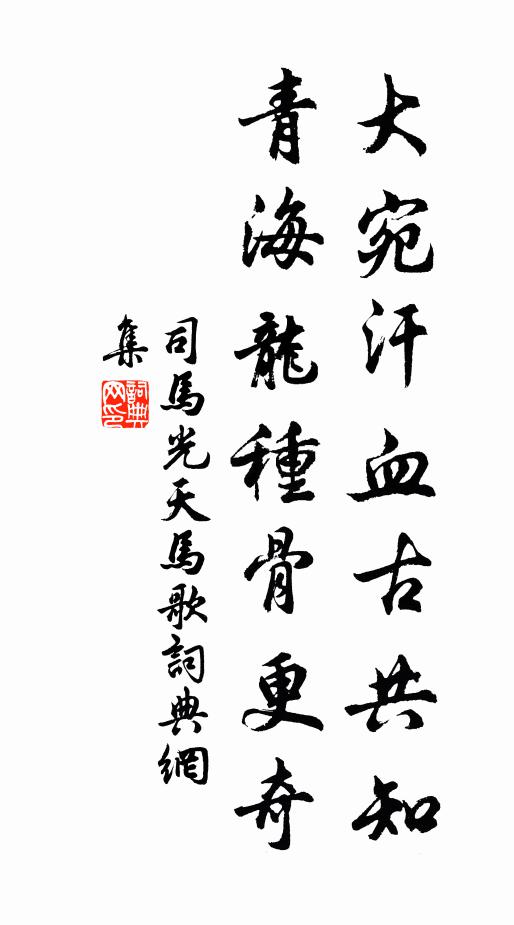 大宛汗血古共知
青海龍種骨更奇
司馬光天馬歌詞典網
集
詞典
网印